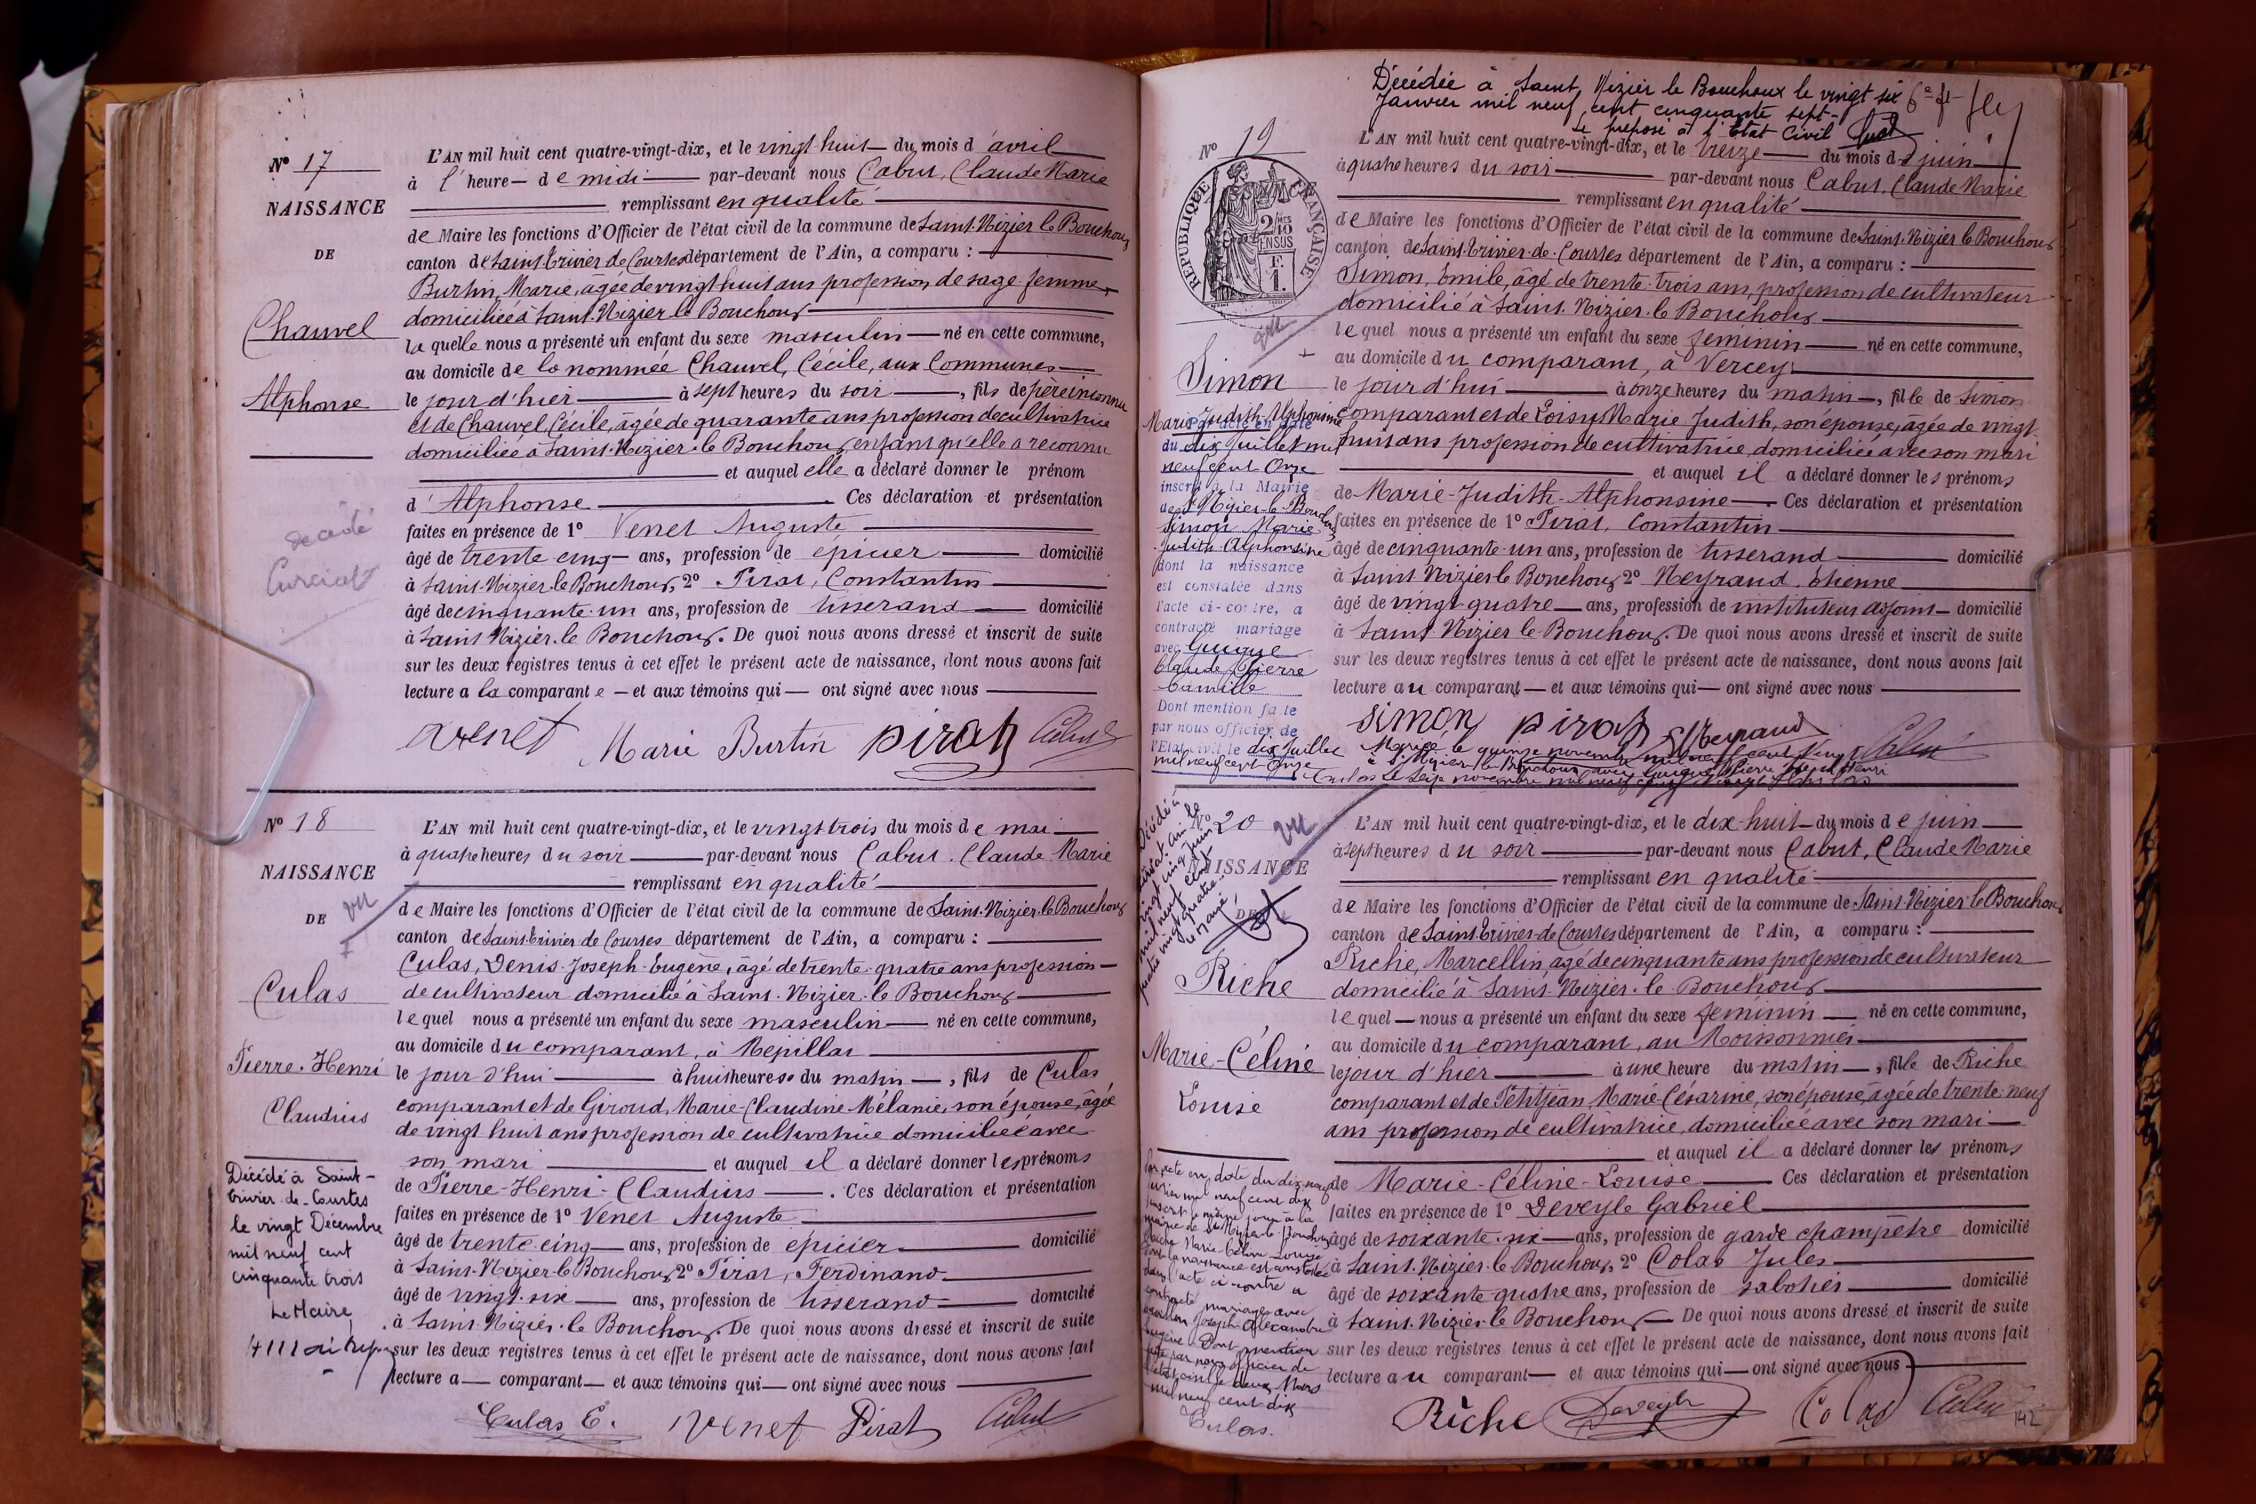 Nº 17
NAISSANCE
DE
Chauvel
Alphonse
décédé
Curciat
L'AN mil huit cent quatre-vingt-dix, et le vingt huit du mois d'avril
à l'heure de midi par-devant nous Cabut, Claude Marie
remplissant en qualité
de Maire les fonctions d'Officier de l'état civil de la commune de Saint-Nizier le Bouchoux
canton de Saint-Trivier de Courtes département de l'Ain, a comparu :
Burtin, Marie, agée de vingt huit ans profession de sage femme
domiciliée à Saint-Nizier le Bouchoux
la quelle nous a présenté un enfant du sexe masculin né en cette commune,
au domicile de la nommée Chauvel, Cécile, aux Communes
le jour d'hier à sept heures du soir, fils de père inconnu
et de Chauvel, Cécile, âgée de quarante ans profession de cultivatrice
domiciliée à Saint-Nizier-le Bouchoux, enfant qu'elle a reconnu
et auquel elle a déclaré donner le prénom
d'Alphonse Ces déclaration et présentation
faites en présence de 1º Venet Auguste
âgé de trente cinq ans, profession de épicier domicilié
à Saint-Nizier-le Bouchoux, 2º Pirat, Constantin
âgé de cinquante-un ans, profession de tisserand domicilié
à Saint Nizier-le Bouchoux. De quoi nous avons dressé et inscrit de suite
sur les deux registres tenus à cet effet le présent acte de naissance, dont nous avons fait
lecture a la comparante et aux témoins qui ont signé avec nous
Venet Marie Burtin Pirat Cabut
Nº 18
NAISSANCE
DE
vu
Culas
Pierre-Henri
Claudius
Décédé à Saint-
Trivier-de-Courtes
le vingt Décembre
mil neuf cent
cinquante trois
Le Maire
L'AN mil huit cent quatre-vingt-dix, et le vingt trois du mois de mai
à quatre heures du soir par-devant nous Cabut, Claude Marie
remplissant en qualité
de Maire les fonctions d'Officier de l'état civil de la commune de Saint-Nizier-le Bouchoux
canton de Saint-Trivier de Courtes département de l'Ain, a comparu :
Culas, Denis-Joseph-Eugène, âgé de trente-quatre ans profession
de cultivateur domicilié à Saint-Nizier-le Bouchoux
le quel nous a présenté un enfant du sexe masculin né en cette commune,
au domicile du comparant, à Mépillat
le jour d'hui à huit heures du matin, fils de Culas
comparant et de Giroud, Marie-Claudine Mélanie, son épouse, âgée
de vingt huit ans profession de cultivatrice domiciliée avec
son mari et auquel il a déclaré donner les prénoms
de Pierre-Henri-Claudius. Ces déclaration et présentation
faites en présence de 1º Venet Auguste
âgé de trente cinq ans, profession de épicier domicilié
à Saint-Nizier-le Bouchoux 2º Pirat, Ferdinand
âgé de vingt-six ans, profession de tisserand domicilié
à Saint-Nizier-le Bouchoux. De quoi nous avons dressé et inscrit de suite
sur les deux registres tenus à cet effet le présent acte de naissance, dont nous avons fait
lecture a comparant et aux témoins qui ont signé avec nous
Culas E. Venet Pirat Cabut
Décédée à Saint Nizier le Bouchoux le vingt six
Janvier mil neuf cent cinquante sept
Le préposé à l'Etat Civil
Nº 19
RÉPUBLIQUE FRANÇAISE
2/10 EN SUS
1F.
Simon
Marie-Judith-Alphonsine
Par acte en date
du dix Juillet mil
neuf cent Onze
inscrit à la Mairie
de St Nizier-le-Bouchoux
Simon Marie
Judith Alphonsine
dont la naissance
est constatée dans
l'acte ci-contre, a
contracté mariage
avec Guigue
Claude Pierre
Camille
Dont mention faite
par nous officier de
l'Etat civil le dix Juillet
mil neuf cent Onze
L'AN mil huit cent quatre-vingt-dix, et le treize du mois de juin
à quatre heures du soir par-devant nous Cabut, Claude Marie
remplissant en qualité
de Maire les fonctions d'Officier de l'état civil de la commune de Saint-Nizier le Bouchoux
canton de Saint-Trivier-de-Courtes département de l'Ain, a comparu :
Simon, Emile, âgé de trente-trois ans, profession de cultivateur
domicilié à Saint-Nizier-le Bouchoux
le quel nous a présenté un enfant du sexe féminin né en cette commune,
au domicile du comparant, à Vercey
le jour d'hui à onze heures du matin, fille de Simon
comparant et de Loisy Marie Judith, son épouse, âgée de vingt-
huit ans profession de cultivatrice, domiciliée avec son mari
et auquel il a déclaré donner les prénoms
de Marie-Judith-Alphonsine Ces déclaration et présentation
faites en présence de 1º Pirat, Constantin
âgé de cinquante-un ans, profession de tisserand domicilié
à Saint Nizier le Bouchoux 2º Neyraud, Etienne
âgé de vingt-quatre ans, profession de instituteur adjoint domicilié
à Saint-Nizier le Bouchoux. De quoi nous avons dressé et inscrit de suite
sur les deux registres tenus à cet effet le présent acte de naissance, dont nous avons fait
lecture au comparant et aux témoins qui ont signé avec nous
Simon Pirat E Neyraud Cabut
Nº 20
vu
NAISSANCE
DE
Riche
Marie-Céline
Louise
L'AN mil huit cent quatre-vingt-dix, et le dix-huit du mois de juin
à sept heures du soir par-devant nous Cabut, Claude Marie
remplissant en qualité
de Maire les fonctions d'Officier de l'état civil de la commune de Saint-Nizier-le Bouchoux
canton de Saint-Trivier-de Courtes département de l'Ain, a comparu :
Riche, Marcellin, agé de cinquante ans profession de cultivateur
domicilié à Saint-Nizier-le Bouchoux
le quel nous a présenté un enfant du sexe féminin né en cette commune,
au domicile du comparant, au Moissonnier
le jour d'hier à une heure du matin, fille de Riche
comparant et de Petitjean, Marie Césarine, son épouse, âgée de trente-neuf
ans profession de cultivatrice, domiciliée avec son mari
et auquel il a déclaré donner les prénoms
de Marie-Céline-Louise Ces déclaration et présentation
faites en présence de 1º Deveyle Gabriel
âgé de soixante-six ans, profession de garde champêtre domicilié
à Saint-Nizier-le Bouchoux, 2º Colas Jules
âgé de soixante quatre ans, profession de sabotier domicilié
à Saint-Nizier-le Bouchoux De quoi nous avons dressé et inscrit de suite
sur les deux registres tenus à cet effet le présent acte de naissance, dont nous avons fait
lecture au comparant et aux témoins qui ont signé avec nous
Riche Deveyle Colas Cabut
142